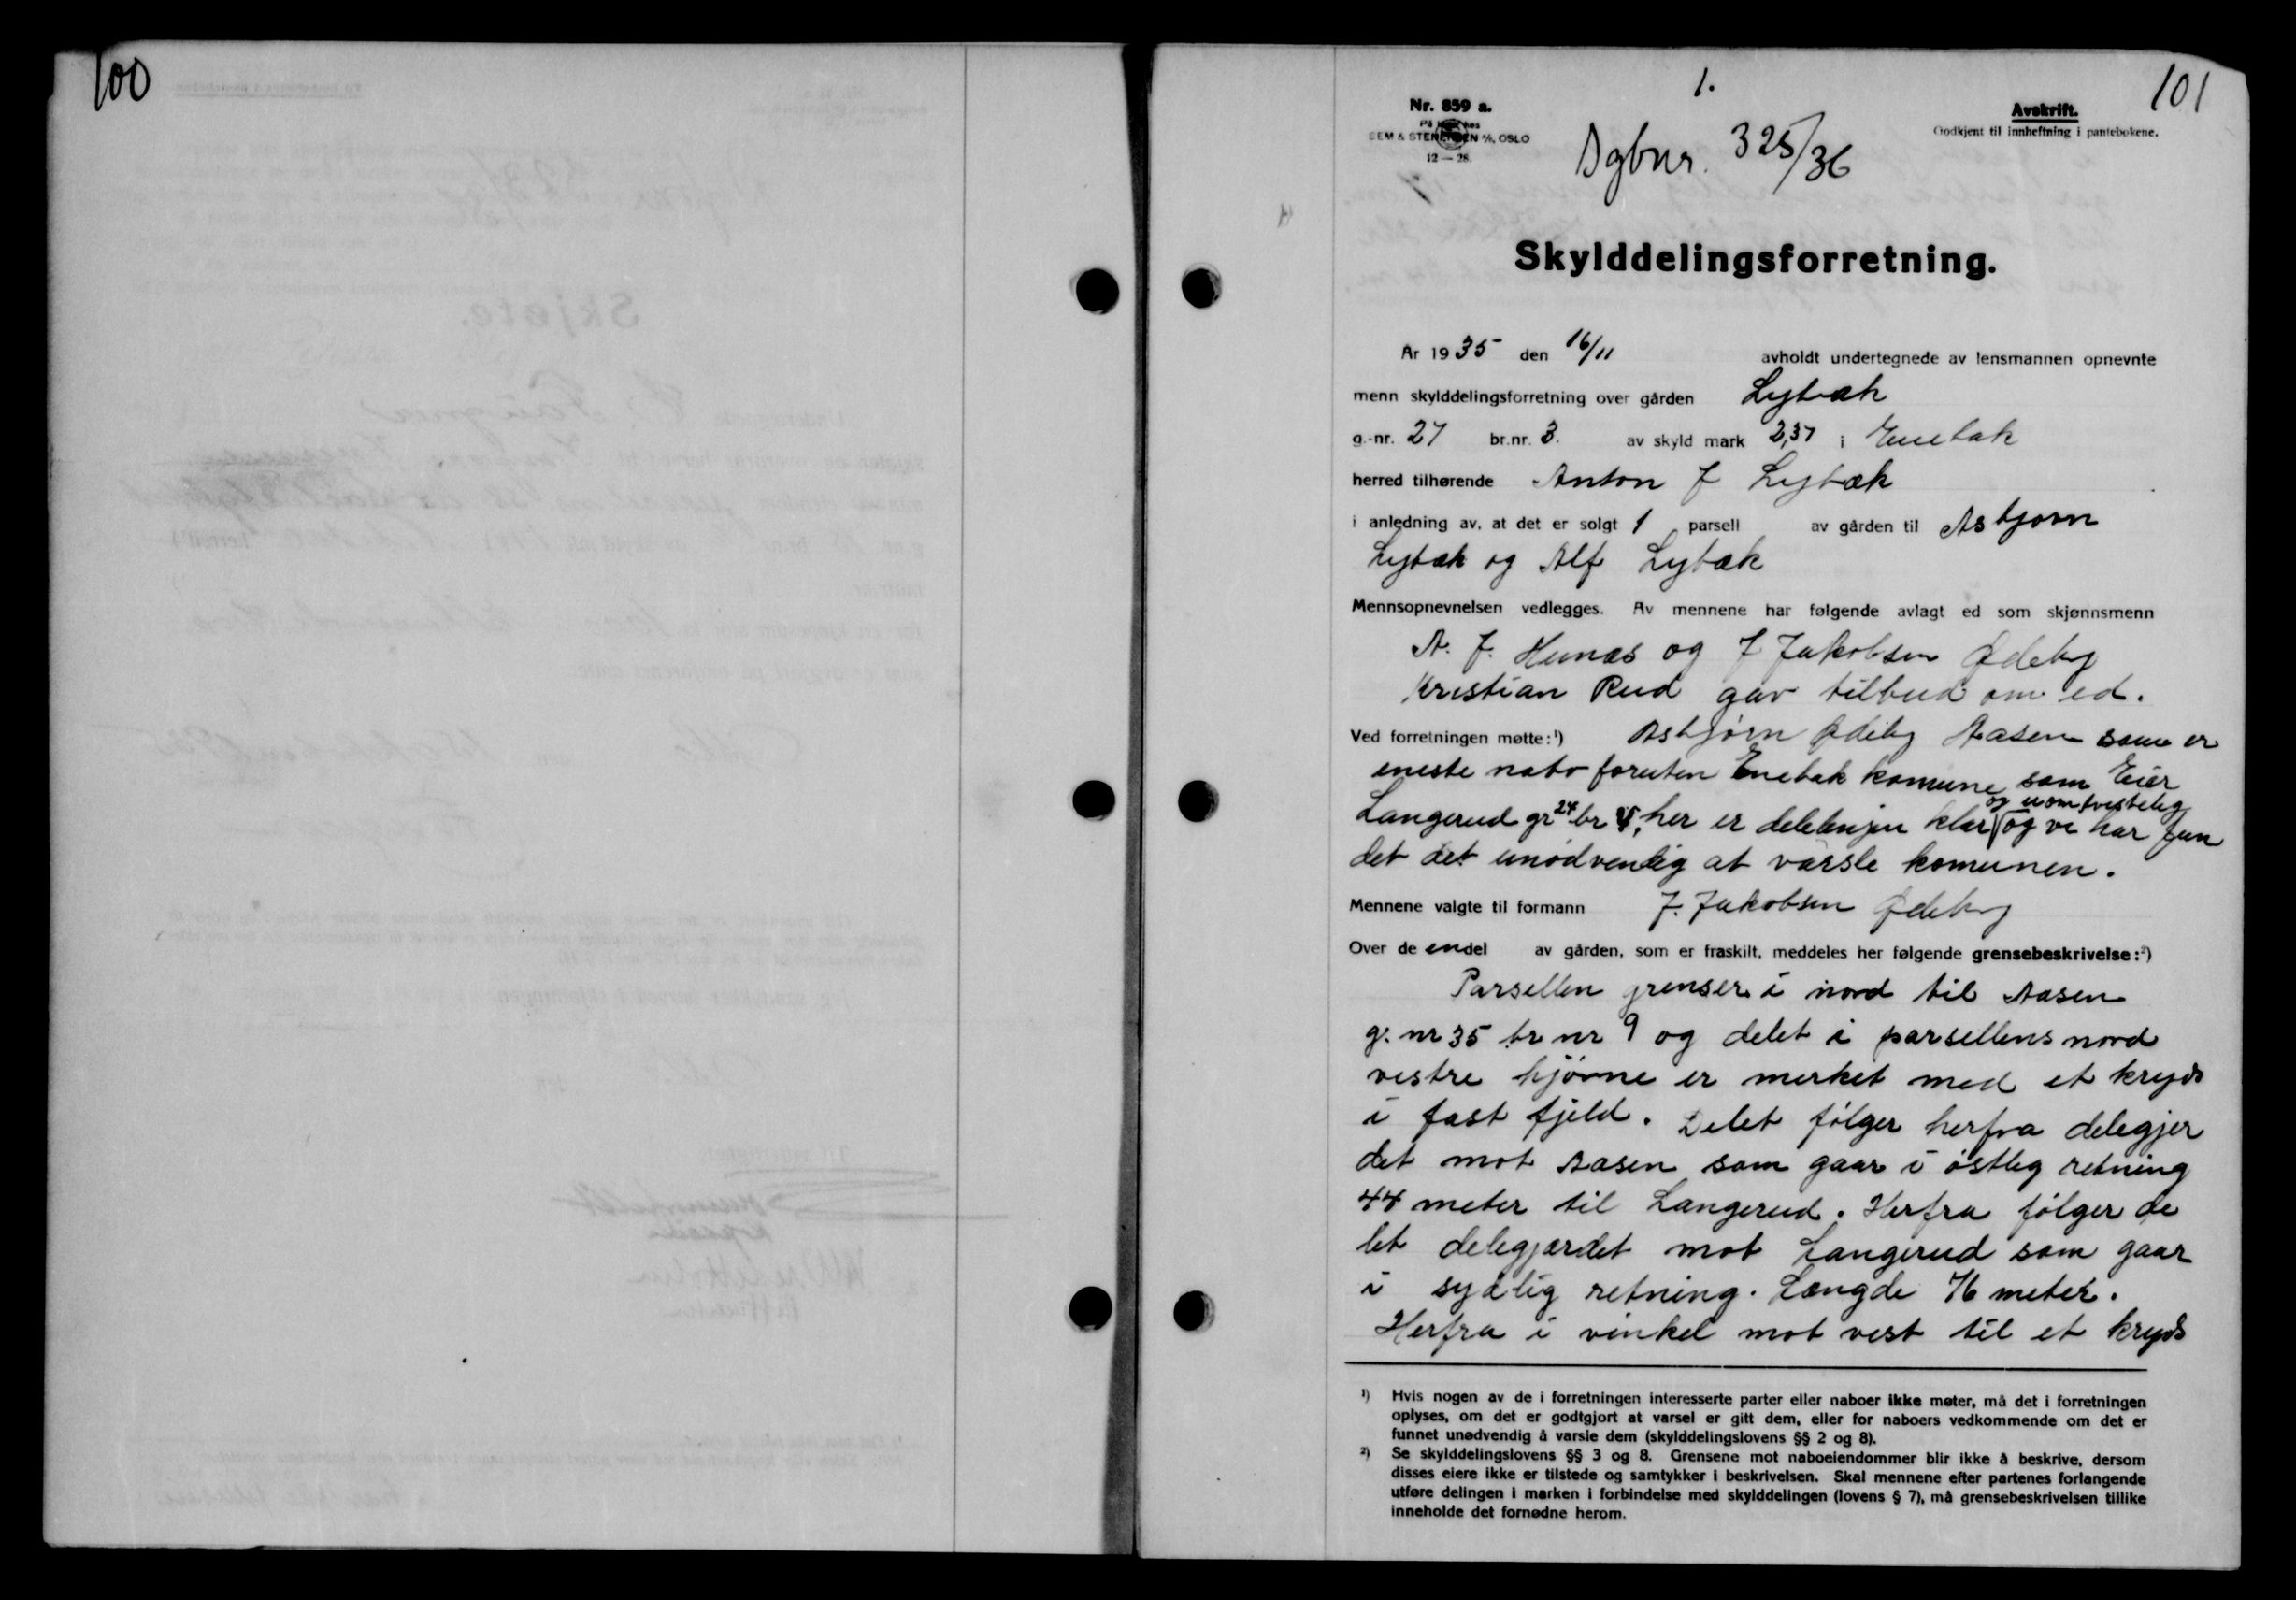 100
1.
101
Nr. 859 a.
På lager hos
SEM & STENERSEN A/S, OSLO
12 — 28.
Dgbnr. 325/36
Avskrift.
Godkjent til innheftning i pantebøkene.
Skylddelingsforretning.
År 1935 den 16/11 avholdt undertegnede av lensmannen opnevnte
menn skylddelingsforretning over gården Lybæk
g.-nr. 27 br.nr. 3. av skyld mark 2,37 i Enebak
herred tilhørende Anton J Lybæk
i anledning av, at det er solgt 1 parsell av gården til Asbjørn
Lybæk og Alf Lybæk
Mennsopnevnelsen vedlegges. Av mennene har følgende avlagt ed som skjønnsmenn
A. J. Hunæs og J Jakobsen Ødeby
Kristian Rud gav tilbud om ed.
Ved forretningen møtte:¹) Asbjørn Ødeby Aasen som er
eneste nabo foruten Enebak komune som Eier
og uomtvistelig
Langerud gr 24 br 4, her er delelinjen klar og vi har fun
det det unødvendig at varsle komunen.
Mennene valgte til formann J. Jakobsen Ødeby
Over de endel av gården, som er fraskilt, meddeles her følgende grensebeskrivelse:²)
Parsellen grenser i nord til Aasen
g. nr 35 br nr 9 og delet i parsellens nord
vestre hjørne er merket med et kryds
i fast fjeld. Delet følger herfra delegjer
det mot Aasen som gaar i østlig retning
44 meter til Langerud. Herfra følger de
let delegjærdet mot Langerud som gaar
i sydlig retning. Længde 76 meter.
Herfra i vinkel mot vest til et kryds
¹) Hvis nogen av de i forretningen interesserte parter eller naboer ikke møter, må det i forretningen
oplyses, om det er godtgjort at varsel er gitt dem, eller for naboers vedkommende om det er
funnet unødvendig å varsle dem (skylddelingslovens §§ 2 og 8).
²) Se skylddelingslovens §§ 3 og 8. Grensene mot naboeiendommer blir ikke å beskrive, dersom
disses eiere ikke er tilstede og samtykker i beskrivelsen. Skal mennene efter partenes forlangende
utføre delingen i marken i forbindelse med skylddelingen (lovens § 7), må grensebeskrivelsen tillike
inneholde det fornødne herom.